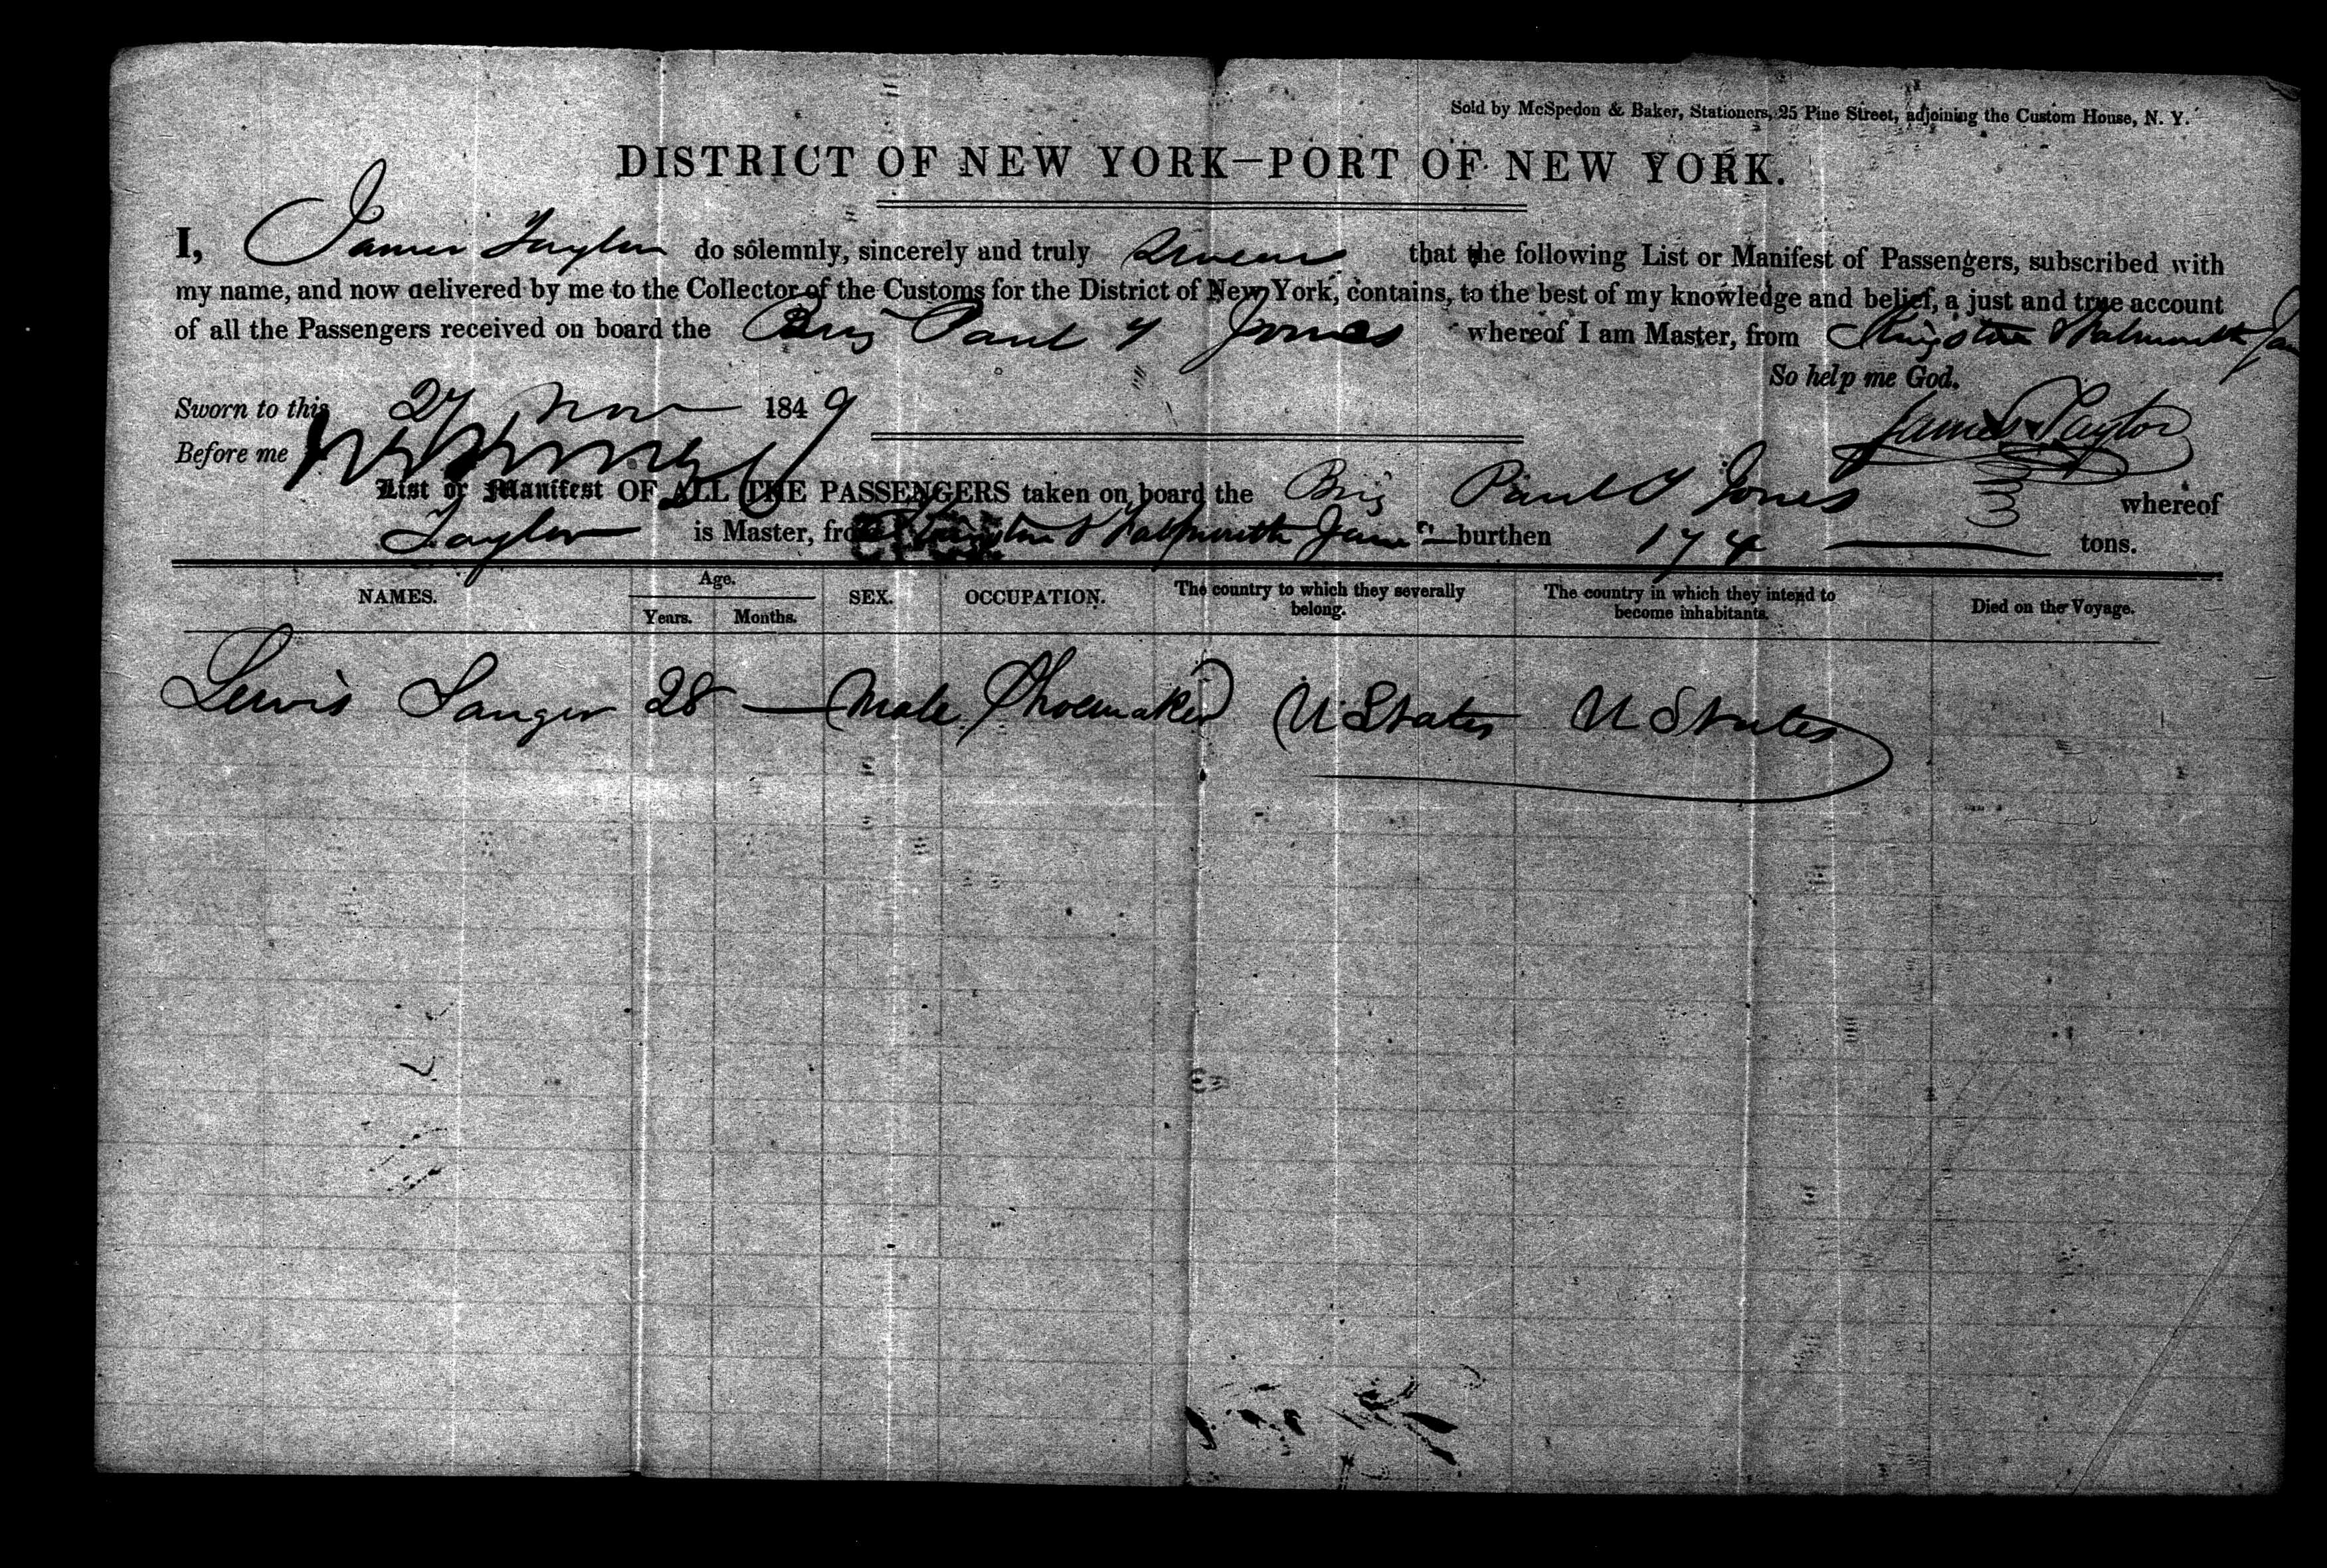 Sold by McSpedon & Baker, Stationers, 25 Pine Street, adjoining the Custom House, N. Y.
DISTRICT OF NEW YORK—PORT OF NEW YORK.
I, James Taylor do solemnly, sincerely and truly swear that the following List or Manifest of Passengers, subscribed with
my name, and now delivered by me to the Collector of the Customs for the District of New York, contains, to the best of my knowledge and belief, a just and true account
of all the Passengers received on board the Brig Paul T Jones whereof I am Master, from Kingston & Falmouth Jam
So help me God.
Sworn to this 27 Nov 1849
James Taylor
Before me
List or Manifest OF ALL THE PASSENGERS taken on board the Brig Paul T Jones whereof
Taylor is Master, from Kingston & Falmouth Jam burthen 174 tons.
NAMES. Age. Years. Months. SEX. OCCUPATION. The country to which they severally belong. The country in which they intend to become inhabitants. Died on the Voyage.
Lewis Sanger 28 — Male Shoemaker U States U States